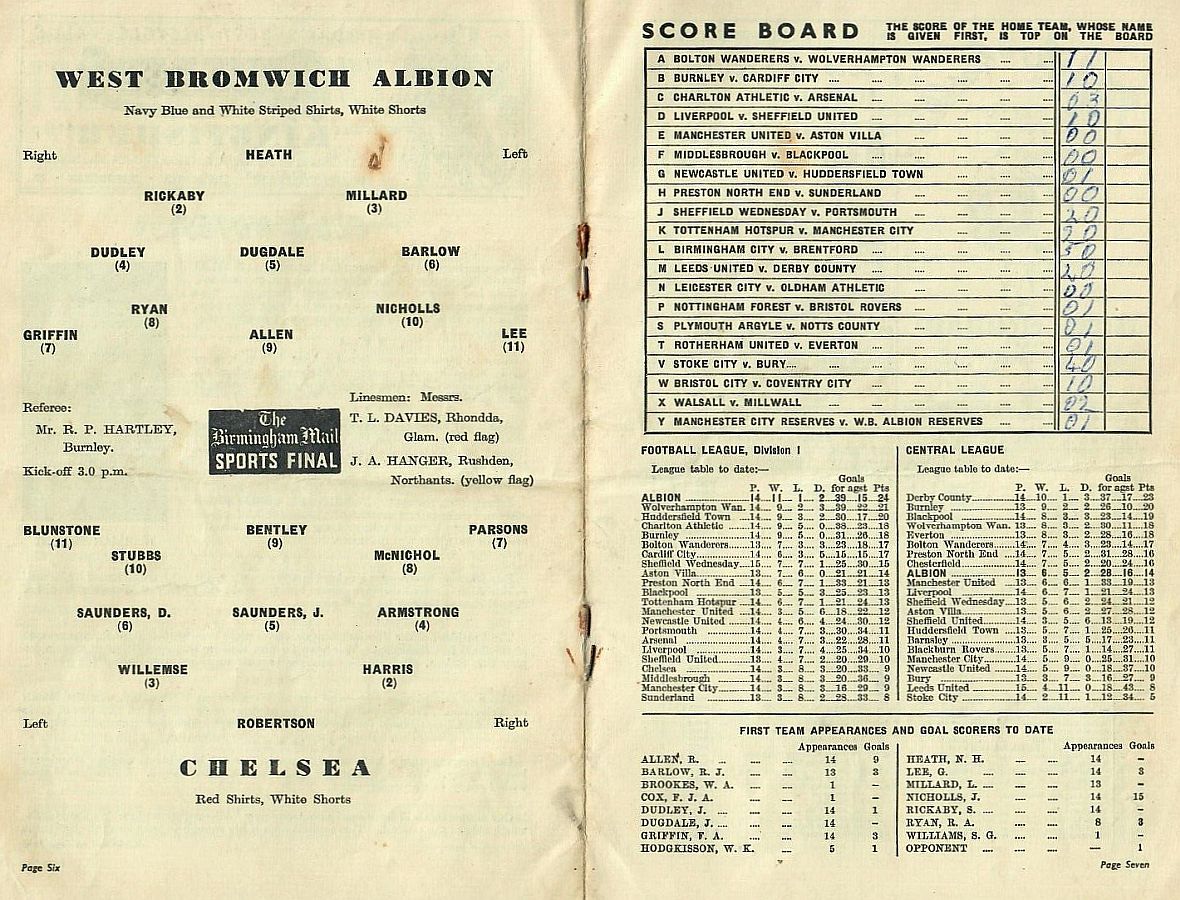 WEST BROMWICH ALBION
Navy Blue and White Striped Shirts, White Shorts
Right HEATH Left
RICKABY MILLARD
(2) (3)
DUDLEY DUGDALE BARLOW
(4) (5) (6)
RYAN NICHOLLS
(8) (10)
GRIFFIN ALLEN LEE
(7) (9) (11)
Referee:
Mr. R. P. HARTLEY,
Burnley.
Kick-off 3.0 p.m.
The
Birmingham Mail
SPORTS FINAL
Linesmen: Messrs.
T. L. DAVIES, Rhondda,
Glam. (red flag)
J. A. HANGER, Rushden,
Northants. (yellow flag)
BLUNSTONE BENTLEY PARSONS
(11) (9) (7)
STUBBS McNICHOL
(10) (8)
SAUNDERS, D. SAUNDERS, J. ARMSTRONG
(6) (5) (4)
WILLEMSE HARRIS
(3) (2)
Left ROBERTSON Right
CHELSEA
Red Shirts, White Shorts
Page Six
SCORE BOARD THE SCORE OF THE HOME TEAM, WHOSE NAME
IS GIVEN FIRST, IS TOP ON THE BOARD
A BOLTON WANDERERS v. WOLVERHAMPTON WANDERERS .... .... 1 1
B BURNLEY v. CARDIFF CITY .... .... .... .... .... .... 1 0
C CHARLTON ATHLETIC v. ARSENAL .... .... .... .... .... 0 3
D LIVERPOOL v. SHEFFIELD UNITED .... .... .... .... .... 1 0
E MANCHESTER UNITED v. ASTON VILLA .... .... .... .... 0 0
F MIDDLESBROUGH v. BLACKPOOL .... .... .... .... .... 0 0
G NEWCASTLE UNITED v. HUDDERSFIELD TOWN .... .... .... 0 1
H PRESTON NORTH END v. SUNDERLAND .... .... .... .... 0 0
J SHEFFIELD WEDNESDAY v. PORTSMOUTH .... .... .... .... 2 0
K TOTTENHAM HOTSPUR v. MANCHESTER CITY .... .... .... 2 0
L BIRMINGHAM CITY v. BRENTFORD .... .... .... .... .... 3 0
M LEEDS UNITED v. DERBY COUNTY .... .... .... .... .... 2 0
N LEICESTER CITY v. OLDHAM ATHLETIC .... .... .... .... 0 0
P NOTTINGHAM FOREST v. BRISTOL ROVERS .... .... .... 0 1
S PLYMOUTH ARGYLE v. NOTTS COUNTY .... .... .... .... 0 1
T ROTHERHAM UNITED v. EVERTON .... .... .... .... .... 0 1
V STOKE CITY v. BURY.... .... .... .... .... .... .... 4 0
W BRISTOL CITY v. COVENTRY CITY .... .... .... .... 1 0
X WALSALL v. MILLWALL .... .... .... .... .... .... 0 2
Y MANCHESTER CITY RESERVES v. W.B. ALBION RESERVES .... .... 0 1
FOOTBALL LEAGUE, Division I
League table to date:—
Goals
P. W. L. D. for agst Pts
ALBION 14 11 1 2 39 15 24
Wolverhampton Wan. 14 9 2 3 39 22 21
Huddersfield Town 14 9 3 2 30 17 20
Charlton Athletic 14 9 5 0 38 23 18
Burnley 14 9 5 0 31 26 18
Bolton Wanderers 13 7 3 3 23 18 17
Cardiff City 14 6 3 5 15 15 17
Sheffield Wednesday 15 7 7 1 25 30 15
Aston Villa 13 7 6 0 21 21 14
Preston North End 14 6 7 1 33 21 13
Blackpool 13 5 5 3 25 23 13
Tottenham Hotspur 14 6 7 1 21 24 13
Manchester United 14 3 5 6 18 22 12
Newcastle United 14 4 6 4 24 30 12
Portsmouth 14 4 7 3 30 34 11
Arsenal 14 4 7 3 22 28 11
Liverpool 14 3 7 4 25 34 10
Sheffield United 13 4 7 2 20 29 10
Chelsea 14 3 8 3 20 33 9
Middlesbrough 14 3 8 3 20 36 9
Manchester City 14 3 8 3 16 29 9
Sunderland 13 3 8 2 28 33 8
CENTRAL LEAGUE
League table to date:—
Goals
P. W. L. D. for agst Pts
Derby County 14 10 1 3 37 17 23
Burnley 13 9 2 2 26 10 20
Blackpool 14 8 3 3 23 14 19
Wolverhampton Wan. 13 8 3 2 30 11 18
Everton 13 8 3 2 28 16 18
Bolton Wanderers 14 7 4 3 23 14 17
Preston North End 14 7 5 2 31 28 16
Chesterfield 14 7 5 2 20 24 16
ALBION 13 6 5 2 28 16 14
Manchester United 13 6 6 1 33 19 13
Liverpool 14 6 7 1 21 24 13
Sheffield Wednesday 13 5 6 2 24 21 12
Aston Villa 13 5 6 2 27 28 12
Sheffield United 14 3 5 6 13 19 12
Huddersfield Town 13 5 7 1 25 26 11
Barnsley 13 3 5 5 17 23 11
Blackburn Rovers 13 5 7 1 14 27 11
Manchester City 14 5 9 0 25 31 10
Newcastle United 14 5 9 0 18 37 10
Bury 13 3 7 3 16 27 9
Leeds United 15 4 11 0 18 43 8
Stoke City 14 2 11 1 12 34 5
FIRST TEAM APPEARANCES AND GOAL SCORERS TO DATE
Appearances Goals
ALLEN, R. .... .... .... 14 9
BARLOW, R. J. .... .... 13 3
BROOKES, W. A. .... .... 1 –
COX, F. J. A. .... .... 1 –
DUDLEY, J. .... .... .... 14 1
DUGDALE, J. .... .... .... 14 –
GRIFFIN, F. A. .... .... 14 3
HODGKISSON, W. K. .... 5 1
Appearances Goals
HEATH, N. H. .... .... 14 –
LEE, G. .... .... .... 14 3
MILLARD, L. .... .... .... 13 –
NICHOLLS, J. .... .... 14 15
RICKABY, S. .... .... .... 14 –
RYAN, R. A. .... .... 8 3
WILLIAMS, S. G. .... .... 1 –
OPPONENT .... .... .... — 1
Page Seven